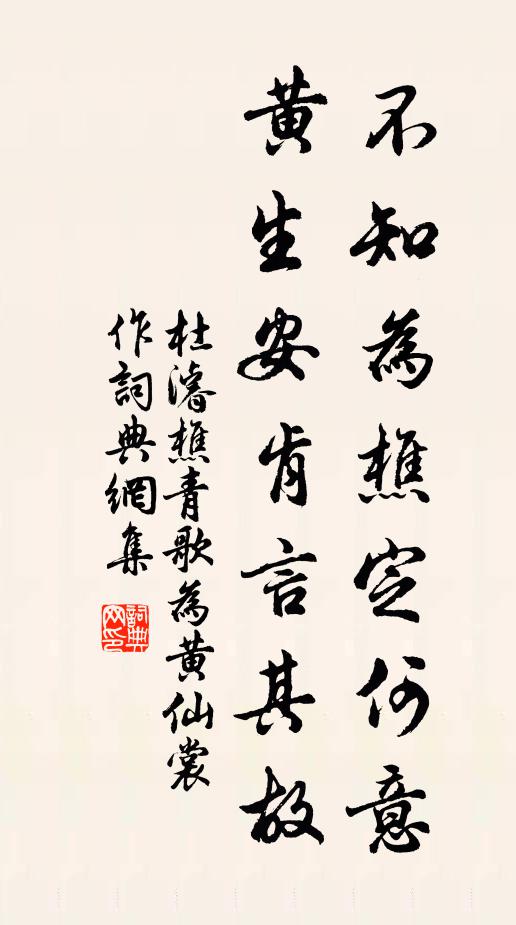 不知為樵定何意
黃生安肯言其故
杜濬樵青歌為黃仙裳
作詞典網集
詞典网印